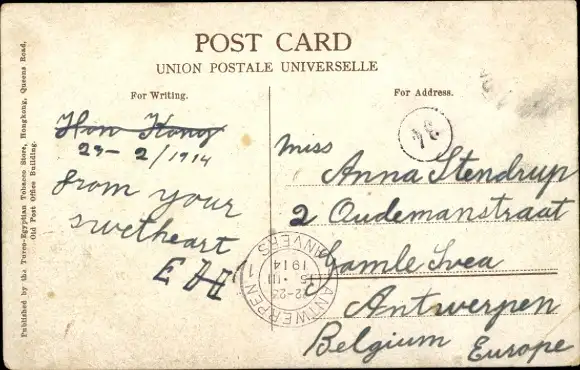 POST CARD
UNION POSTALE UNIVERSELLE
For Writing.
For Address.
Published by the Turco-Egyptian Tobacco Store, Hongkong, Queens Road,
Old Post Office Building.
Hon Kong
23-2/1914
from your
swetheart
34
Miss
Anna Stendrup
2 Oudemanstraat
Gamle Svea
Antwerpen
Belgium Europe
ANTWERPEN 1
22-23
15 III
1914
ANVERS